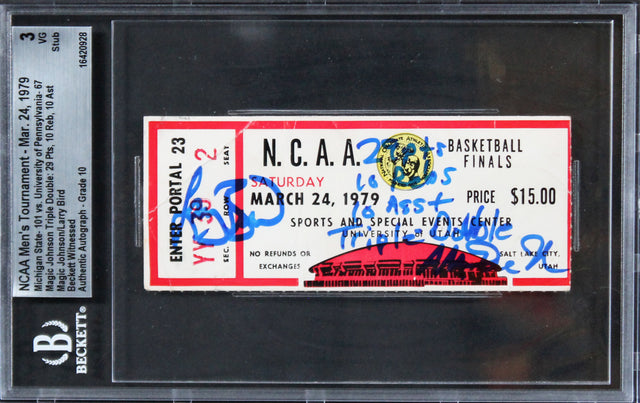 3
VG
Stub
16420928
NCAA Men's Tournament - Mar. 24, 1979
Michigan State- 101 vs. University of Pennsylvania- 67
Magic Johnson Triple Double: 29 Pts, 10 Reb, 10 Ast
Magic Johnson/Larry Bird
Beckett Witnessed
Authentic Autograph - Grade 10
BECKETT
ENTER PORTAL 23
YY 39 2
SEC. ROW SEAT
N.C.A.A.
BASKETBALL
FINALS
SATURDAY
MARCH 24, 1979
PRICE $15.00
SPORTS AND SPECIAL EVENTS CENTER
UNIVERSITY OF UTAH
NO REFUNDS OR
EXCHANGES
SALT LAKE CITY,
UTAH
29 pts
10 Rebs
10 Asst
Triple Double